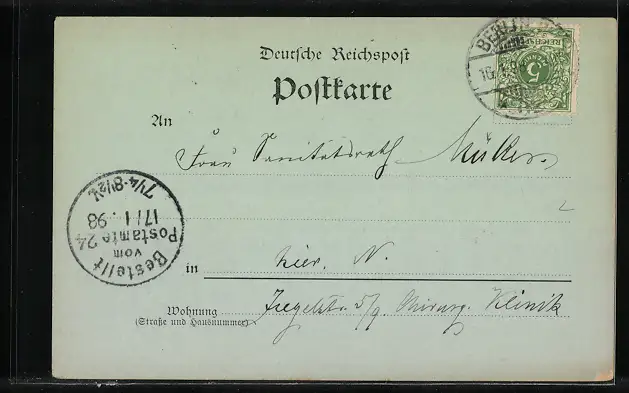 Deutsche Reichspost
Postkarte
BERLIN
5
An
Frau Sanitätsrath Müller.
Bestellt
vom
Postamte 24
17/1 98
7 1/4-8 1/2 V.
in hier. N.
Wohnung Ziegelstr. 5/9. Chirurg. Klinik
(Straße und Hausnummer)